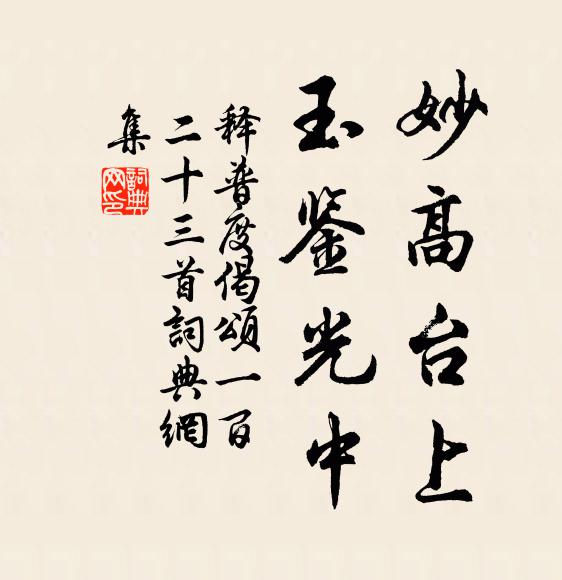 妙高台上
玉鉴光中
释普度偈頌一百
二十三首詞典網
集
詞典
网印